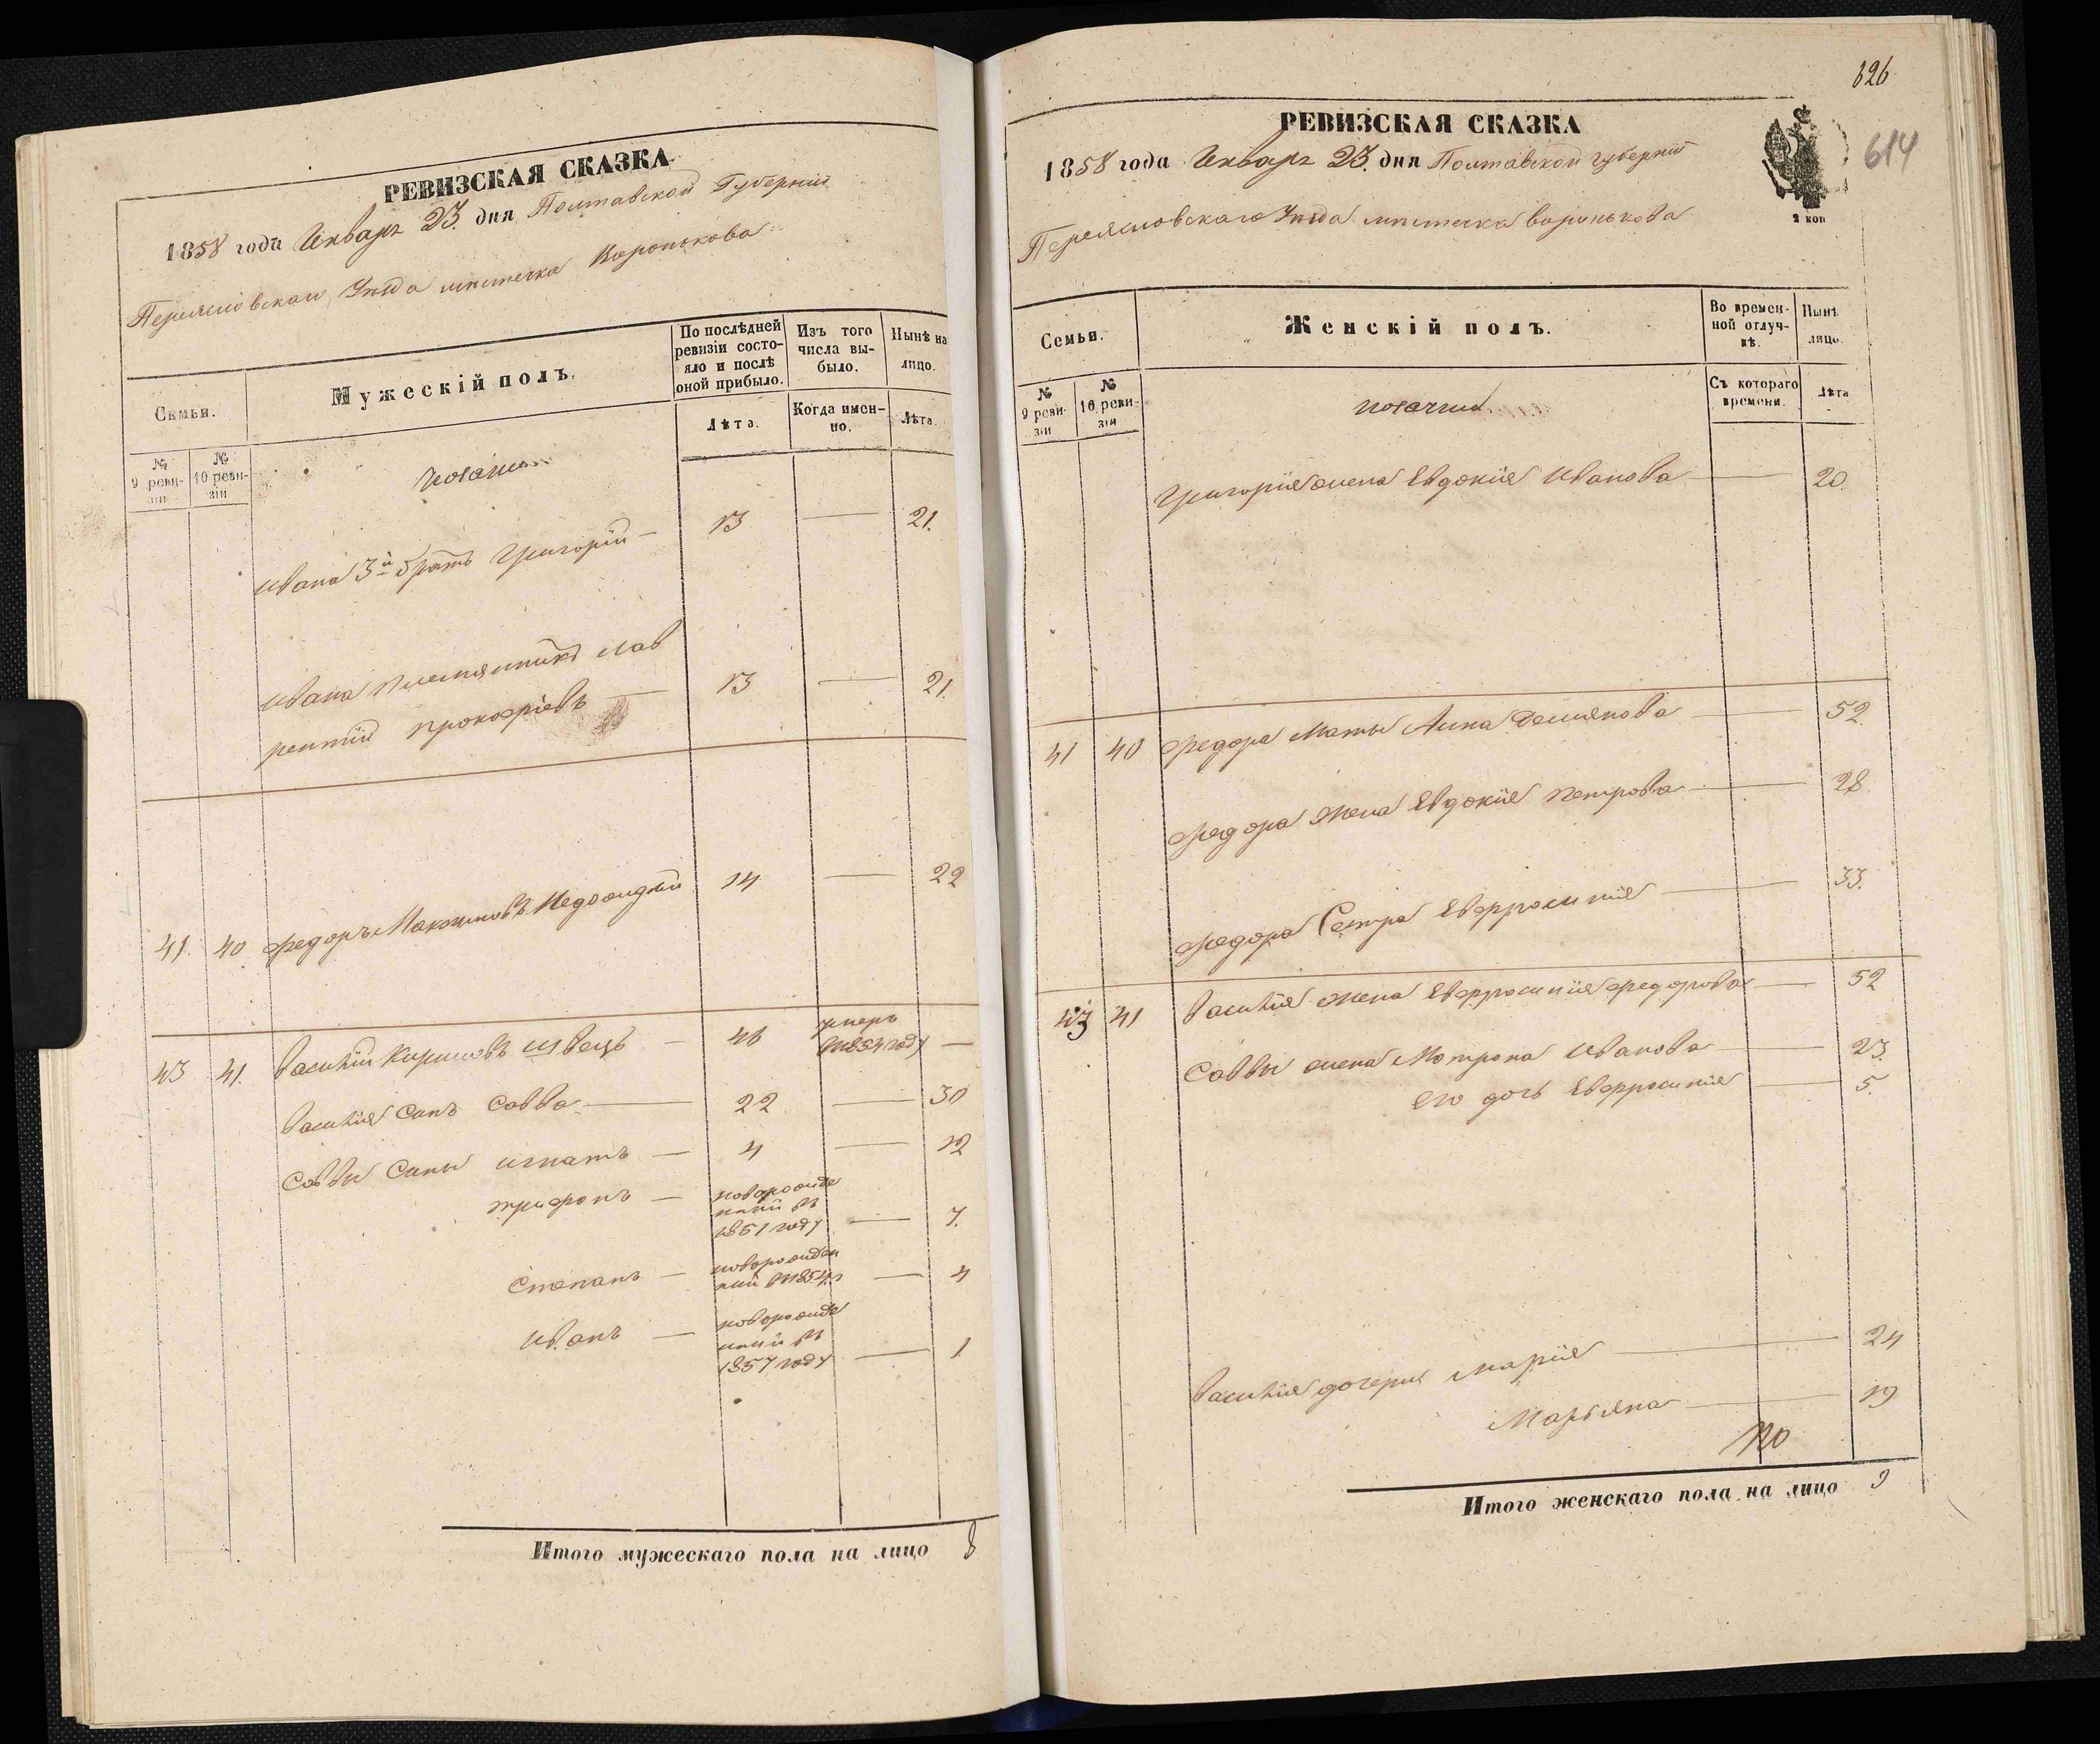 РЕВИЗСКАЯ СКАЗКА
1858 года Январь 23. дня Полтавской Губернии
Переясловскаго Уезда местечка Воронькова
Семьи.
Мужескій полъ.
По послѣдней ревизіи состояло и послѣ оной прибыло.
Изъ того числа выбыло.
Нынѣ на лицо.
№ 9 ревизіи
№ 10 ревизіи
Лѣта.
Когда именно.
Лѣта.
козачки
Ивана 3й братъ Григорій — 13 — 21.
Ивана племянникъ Лав
рентій Прокофіевъ — 13 — 21.
41. 40 Федоръ Максимовъ 14 — 22
43 41. Василій Кириловъ Швець — 46 умеръ
в 1854 году —
Василія Сынъ Савва — 22 — 30
Саввы Сыны Игнатъ — 4 — 12
Трифонъ — новорожде
нный въ
1851 году — 7.
Степанъ — новорожден
ный в 1854 г — 4
Иванъ — новорожде
нный въ
1857 году — 1.
Итого мужескаго пола на лицо 8
626
614
РЕВИЗСКАЯ СКАЗКА
1858 года Январь 23. дня Полтавской губерніи
2 коп
Переясловскаго Уезда местечка воронькова
Семьи.
Женскій полъ.
Во временной отлучкѣ.
Нынѣ лицо.
№ 9 ревизіи
№ 10 ревизіи
Съ котораго времени.
Лѣта
козачки
Григорія жена Евдокія Иванова — 20.
41 40 Федора Мать Анна Демянова — 52
Федора жена Евдокія Петрова — 28
Федора Сестра Евфросинія — 33.
43 41 Василія жена Евфросинія Федорова — 52
Саввы жена Мотрона Иванова — 23.
Его дочь Евфросинія — 5.
Василія дочери Марія — 24
Марьяна — 19
Итого женскаго пола на лицо 9